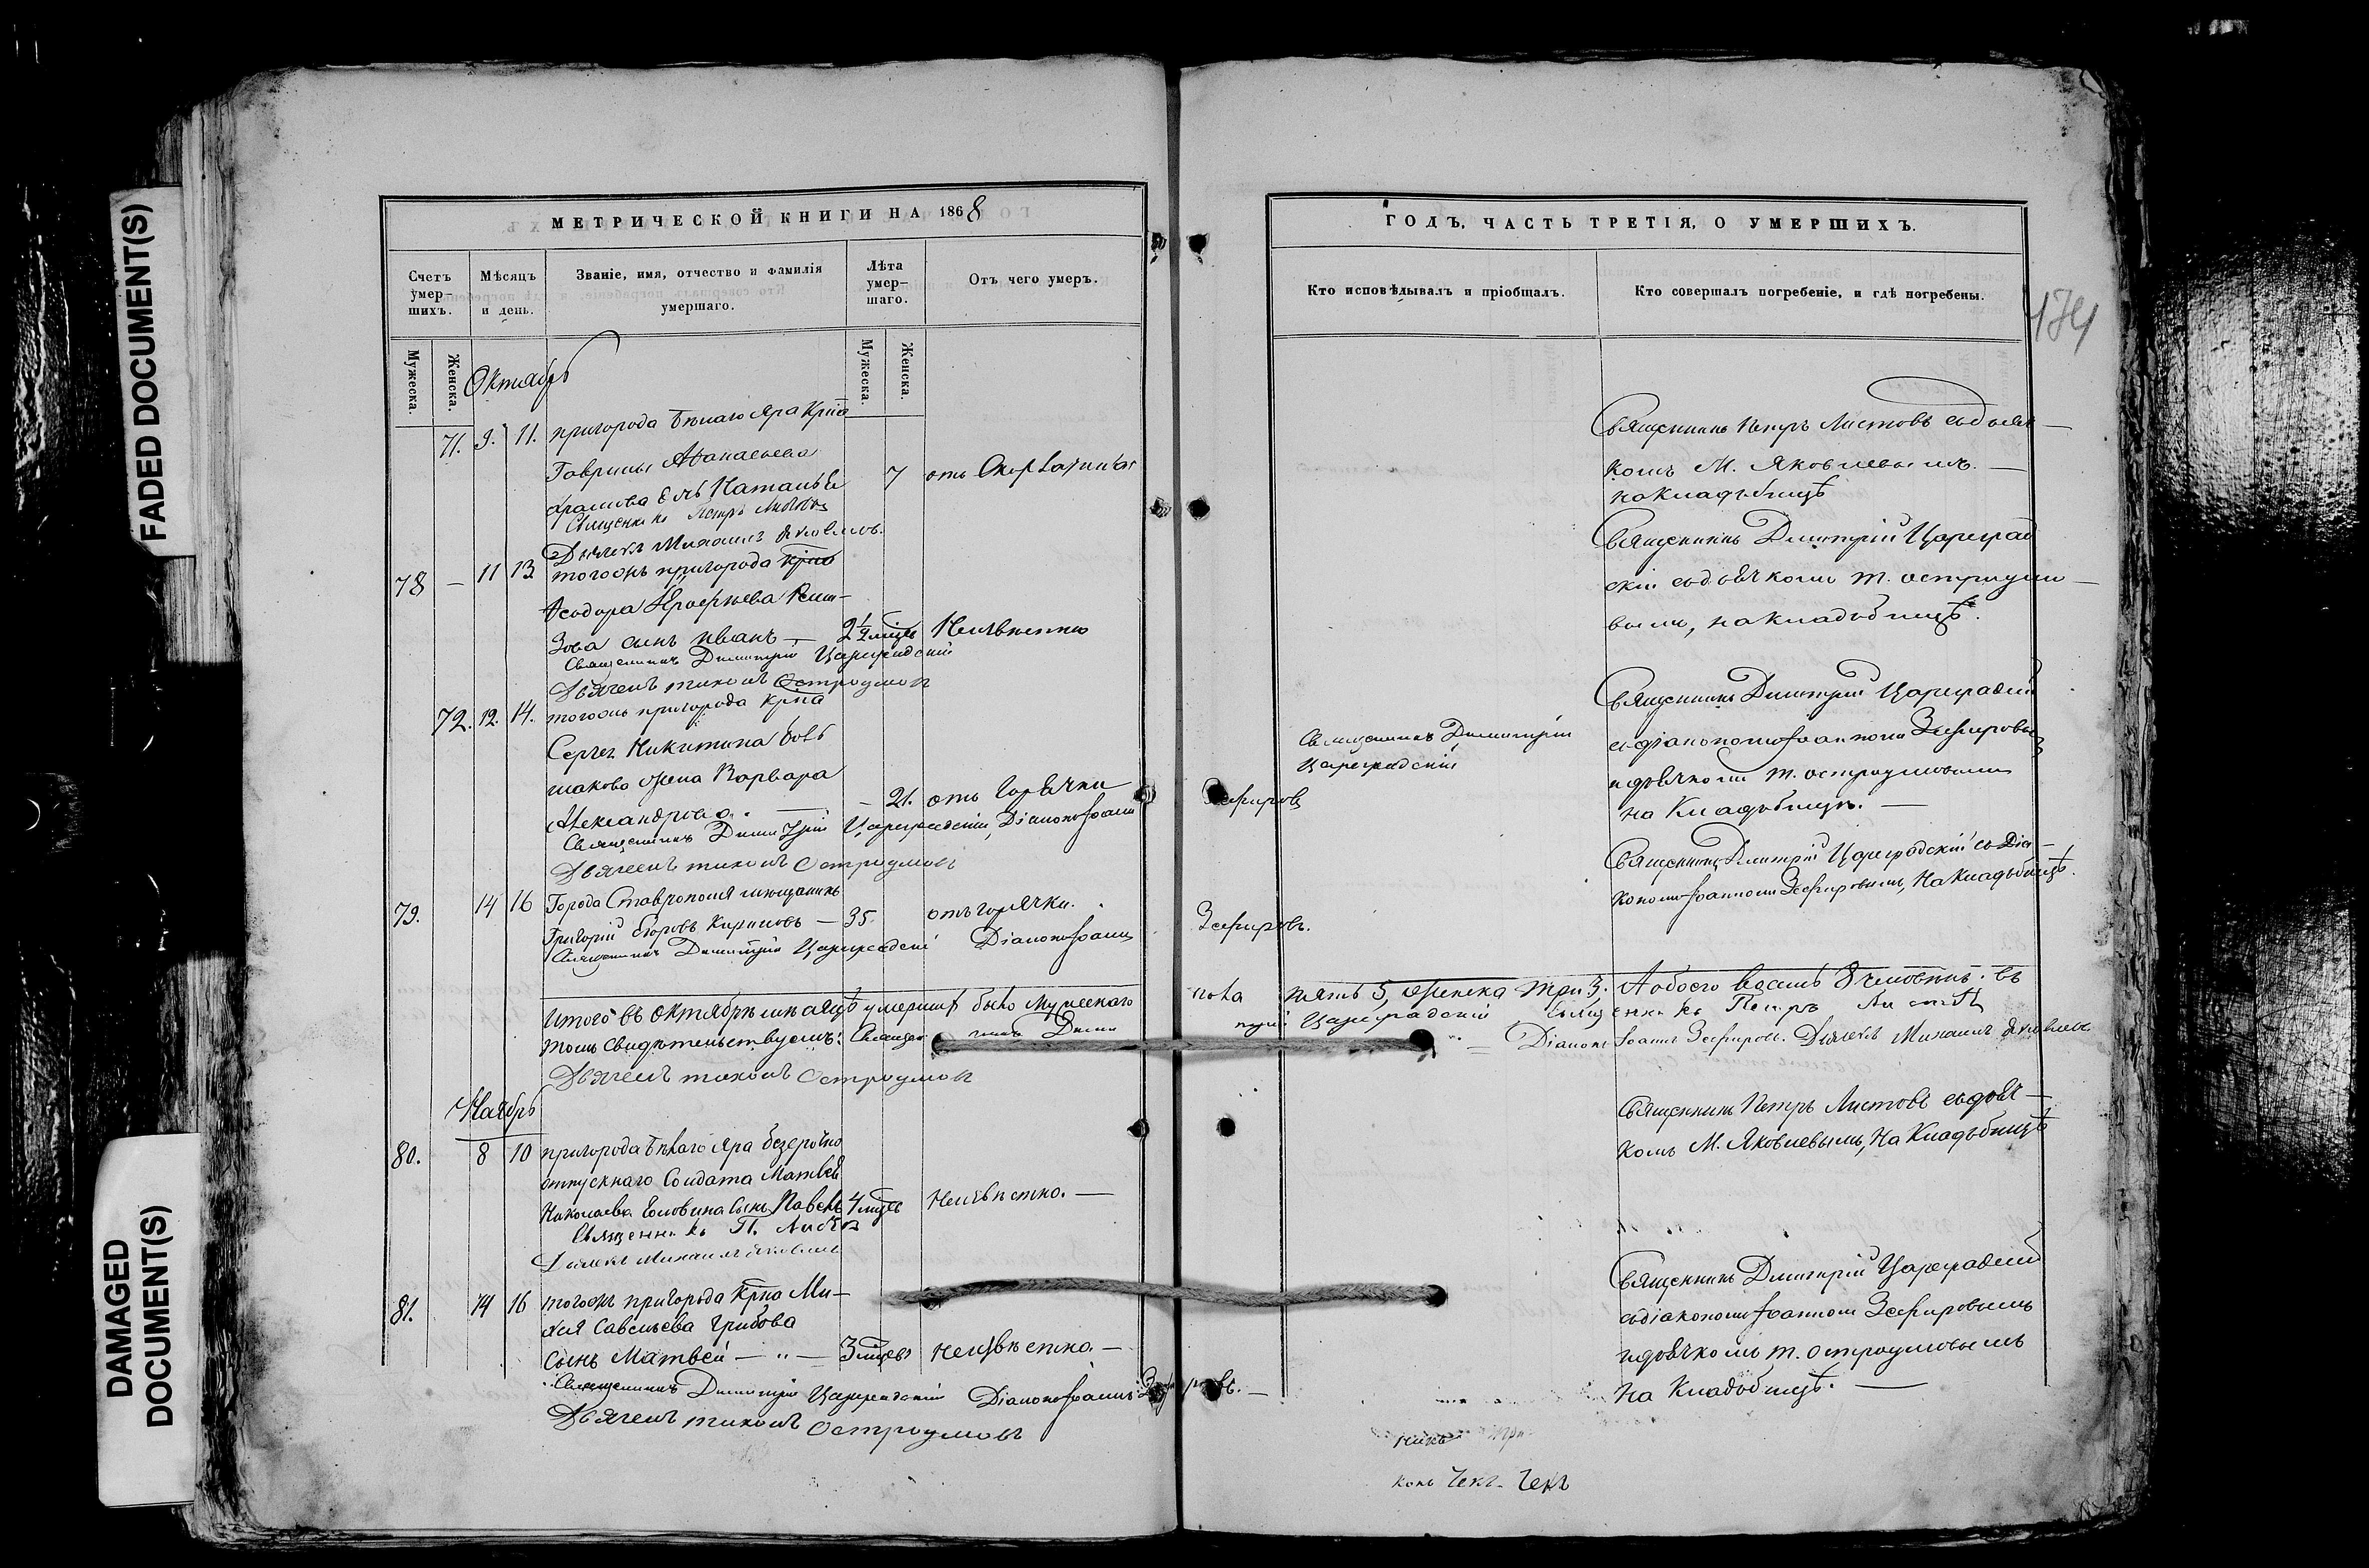 FADED DOCUMENT(S)
DAMAGED DOCUMENT(S)
МЕТРИЧЕСКОЙ КНИГИ НА 1868
Счетъ умер-шихъ.
Мѣсяцъ и день.
Званіе, имя, отчество и фамилія умершаго.
Лѣта умер-шаго.
Отъ чего умеръ.
Мужеска.
Женска.
Мужеска.
Женска.
Октябрь
71. 9. 11. пригорода Бѣлаго Яра Крна
Гаврилы Аѳанасьева
дочь Наталья 7 отъ
Священникъ Петръ Листовъ
Дьячекъ Михаилъ Яковлевъ.
78 — 11 13 тогожъ пригорода Крна
Ѳеодора
зова сынъ Иванъ — 2 1/2 мцъ Неизвѣстно
Священникъ Димитрій Цареградскій
Дьячекъ Тихонъ Остроумовъ
72. 12. 14. тогожъ пригорода Крна
Сергея Никитина
жена Варвара
Александрова. — 21. отъ Горячки
Священникъ Димитрій Цареградскій, Діаконъ Іоаннъ Зефировъ
Дьячекъ Тихонъ Остроумовъ
79. 14 16 Города Ставрополя мѣщанинъ
Григорій Егоровъ — 35. отъ горячки.
Священникъ Димитрій Цареградскій Діаконъ Іоаннъ Зефировъ.
Итого въ Октябрѣ мѣсяцѣ умершихъ было мужескаго пола пять 5, женска три 3. А обоего восемь 8 человѣкъ. въ
томъ свидѣтельствуемъ: Священникъ Димитрій Цареградскій Священникъ Петръ Листовъ
Діаконъ Іоаннъ Зефировъ. Дьячекъ Михаилъ Яковлевъ
Дьячекъ Тихонъ Остроумовъ
Ноябрь
80. 8 10 пригорода Бѣлаго Яра безсрочно
отпускнаго Солдата Матвея
Николаева Головина сынъ Павелъ 4 мцъ Неизвѣстно. —
Священникъ П. Листовъ
Дьячекъ Михаилъ Яковлевъ
81. 14 16 тогожъ пригорода Крна Ми-
Савельева Грибова
Сынъ Матвей — " — 3 мцъ Неизвѣстно. —
Священникъ Димитрій Цареградскій Діаконъ Іоаннъ Зефировъ. —
Дьячекъ Тихонъ Остроумовъ
ГОДЪ, ЧАСТЬ ТРЕТІЯ, О УМЕРШИХЪ.
Кто исповѣдывалъ и пріобщалъ.
Кто совершалъ погребеніе, и гдѣ погребены.
174
Священникъ Петръ Листовъ съ дьяч-
комъ М. Яковлевымъ. —
на Кладбищѣ
Священникъ Димитрій Цареград
скій съ дьячкомъ Т. Остроумо-
вымъ, на кладбищѣ.
Священникъ Димитрій
Цареградскій
Священникъ Димитрій Цареградскій
съ діакономъ Іоанномъ Зефировымъ
и дьячкомъ Т. Остроумовымъ
на Кладбищѣ. —
Священникъ Димитрій Цареградскій съ Діа-
кономъ Іоанномъ Зефировымъ, На Кладбищѣ.
Священникъ Петръ Листовъ съ дьяч-
комъ М. Яковлевымъ, На Кладбищѣ
Священникъ Димитрій Цареградскій
съ діакономъ Іоанномъ Зефировымъ
и дьячкомъ Т. Остроумовымъ
На Кладбищѣ. —